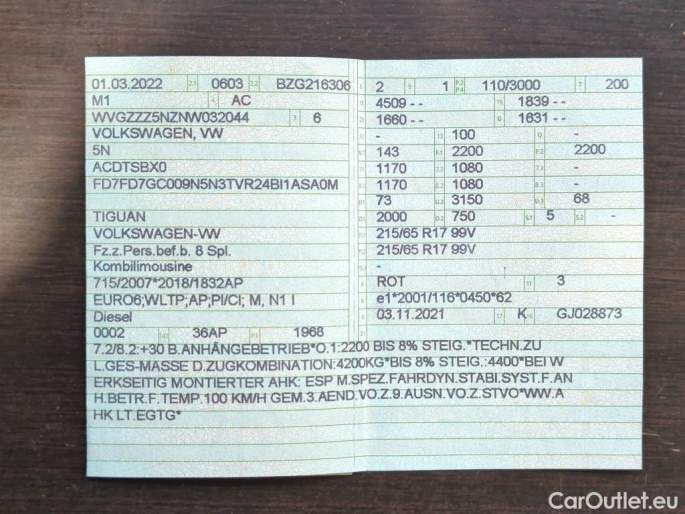 01.03.2022 0603 BZG216306
M1 AC
WVGZZZ5NZNW032044 6
VOLKSWAGEN, VW
5N
ACDTSBX0
FD7FD7GC009N5N3TVR24BI1ASA0M
TIGUAN
VOLKSWAGEN-VW
Fz.z.Pers.bef.b. 8 Spl.
Kombilimousine
715/2007*2018/1832AP
EURO6;WLTP;AP;PI/CI; M, N1 I
Diesel
0002 36AP 1968
2 1 110/3000 200
4509 - - 1839 - -
1660 - - 1631 - -
- 100 -
143 2200 2200
1170 1080 -
1170 1080 -
73 3150 68
2000 750 5 -
215/65 R17 99V
215/65 R17 99V
-
ROT 3
e1*2001/116*0450*62
03.11.2021 K GJ028873
7.2/8.2:+30 B.ANHÄNGEBETRIEB*O.1:2200 BIS 8% STEIG.*TECHN.ZU
L.GES-MASSE D.ZUGKOMBINATION:4200KG*BIS 8% STEIG.:4400*BEI W
ERKSEITIG MONTIERTER AHK: ESP M.SPEZ.FAHRDYN.STABI.SYST.F.AN
H.BETR.F.TEMP.100 KM/H GEM.3.AEND.VO.Z.9.AUSN.VO.Z.STVO*WW.A
HK LT.EGTG*
CarOutlet.eu